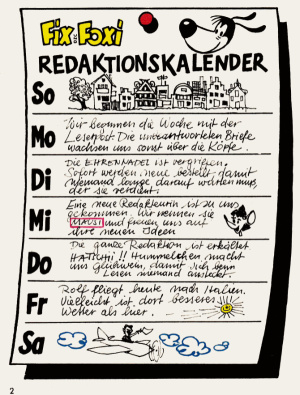 Fix und Foxi
REDAKTIONSKALENDER
So
Mo
Wir beginnen die Woche mit der
Leserpost. Die unbeantworteten Briefe
wachsen uns sonst über die Köpfe.
Di
Die EHRENNADEL ist vergriffen.
Sofort werden neue bestellt, damit
niemand lange darauf warten muss,
der sie verdient.
Mi
Eine neue Redakteurin ist zu uns
gekommen. Wir nennen sie
MAUSI und freuen uns auf
ihre neuen Ideen
Do
Die ganze Redaktion ist erkältet
HATSCHI!! Hummelchen macht
uns Glühwein, damit sich beim
Lesen niemand ansteckt.
Fr
Rolf fliegt heute nach Italien.
Vielleicht ist dort besseres
Wetter als hier.
Sa
2